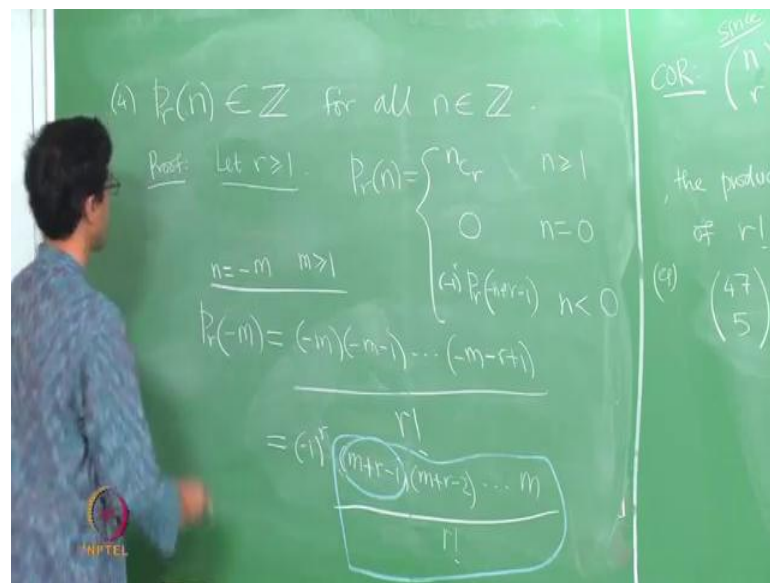 (4) Pr(n) ∈ ℤ for all n ∈ ℤ.
Proof: Let r ≥ 1. Pr(n) = { nCr n ≥ 1
0 n = 0
(-1)^r Pr(-n+r-1) n < 0
n = -m m ≥ 1
Pr(-m) = (-m)(-m-1) ... (-m-r+1)
r!
= (-1)^r (m+r-1)(m+r-2) ... m
r!
since
COR: (n r)
the produc
of r!
(eg) (47 5)
NPTEL